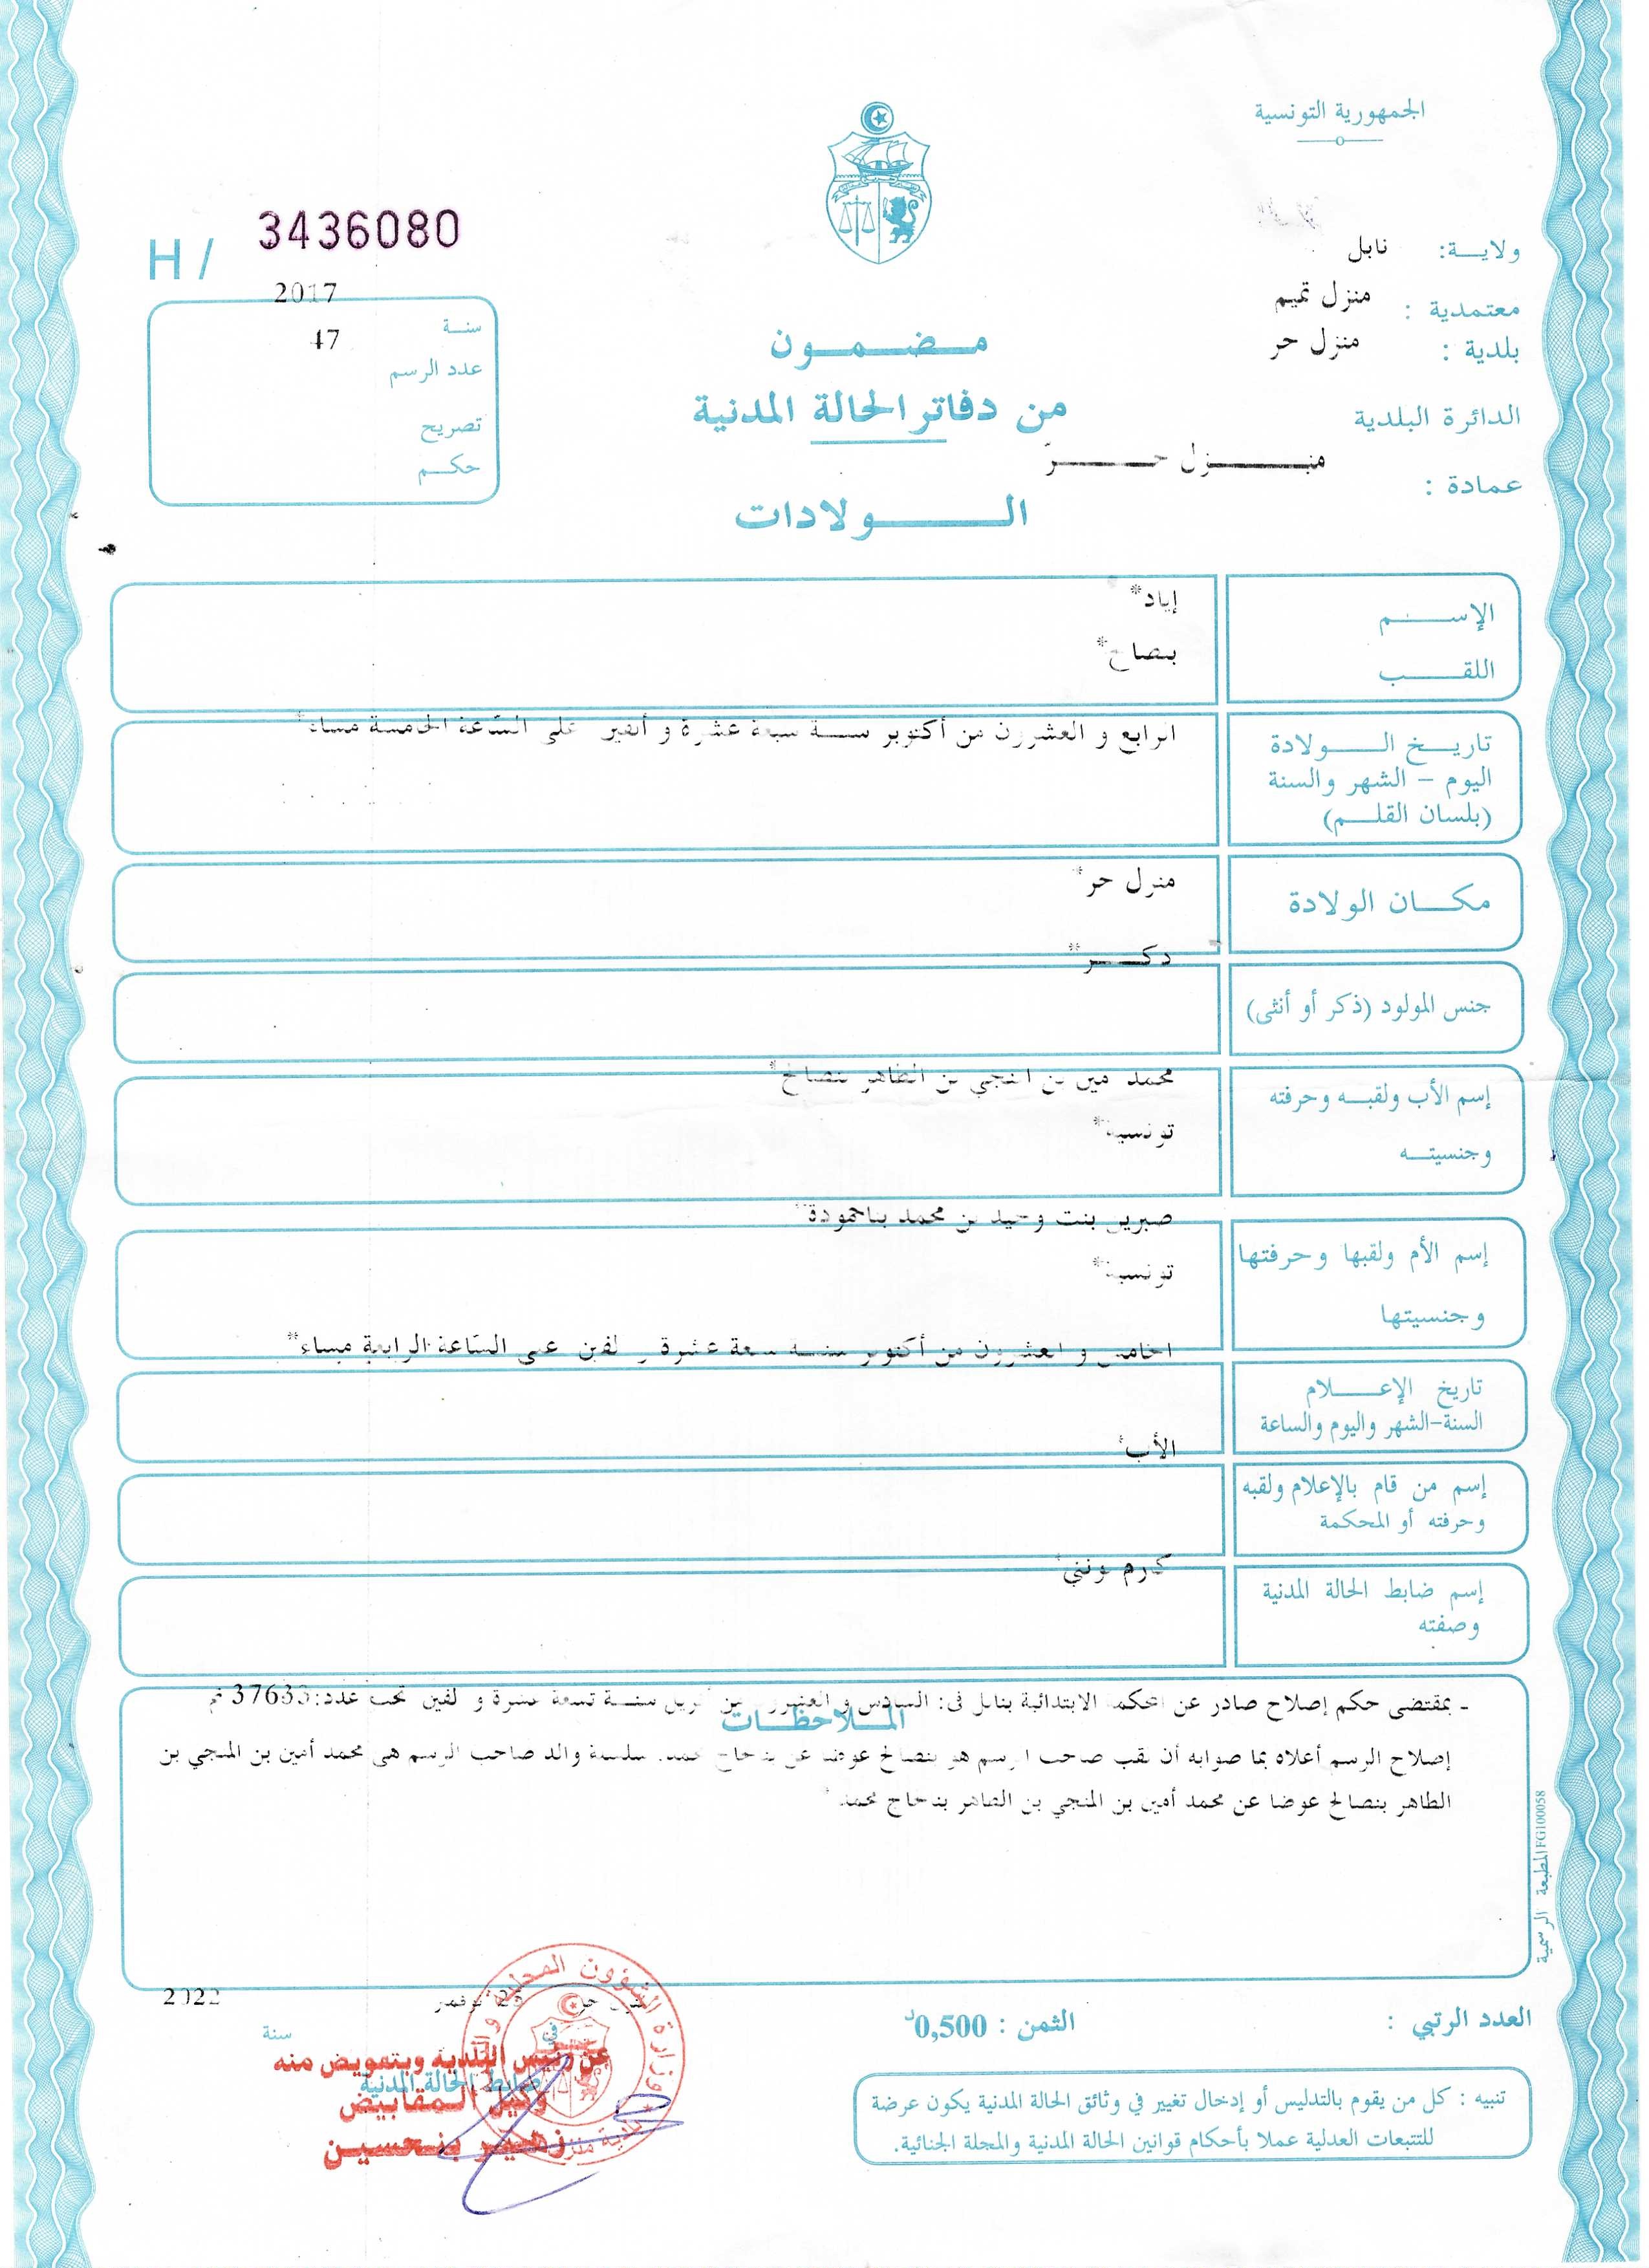 الجمهورية التونسية
ولايـــة: نابل
معتمدية : منزل تميم
بلدية : منزل حر
الدائرة البلدية
منـــــزل حـــــرّ
عمادة :
H / 3436080
2017
سنــة
47
عدد الرسم
تصريح
حكــم
مـــضـــمـــون
من دفاتر الحالة المدنية
الــــــولادات
الإســــم
إياد*
اللقــــب
بنصالح*
تاريــخ الـــــولادة
اليوم – الشهر والسنة
(بلسان القلــم)
الرابع و العشرون من أكتوبر سنــة سبعة عشرة و ألفين على السّاعة الخامسة مساء*
مكـــان الولادة
منزل حر*
ذكــــر**
جنس المولود (ذكر أو أنثى)
إسم الأب ولقبــه وحرفته
وجنسيتــه
محمد أمين بن المنجي بن الطاهر بنصالح*
تونسية*
إسم الأم ولقبها وحرفتها
وجنسيتها
بنت وحيد بن محمد
تونسية*
الخامس و العشرون من أكتوبر سنــة سبعة عشرة و ألفين على السّاعة الرابعة مساء**
تاريخ الإعـــــلام
السنة-الشهر واليوم والساعة
الأب*
إسم من قام بالإعلام ولقبه
وحرفته أو المحكمة
إسم ضابط الحالة المدنية
وصفته
الملاحظــات
ـ بمقتضى حكم إصلاح صادر عن المحكمة الابتدائية بنابل في: السادس و العشرون من أفريل سنــة تسعة عشرة و ألفين تحت عدد: تم
إصلاح الرسم أعلاه بما صوابه أن لقب صاحب الرسم هو بنصالح عوضا عن بنحاج محمد. سلسلة والد صاحب الرسم هي محمد أمين بن المنجي بن
الطاهر بنصالح عوضا عن محمد أمين بن المنجي بن الطاهر بنحاج محمد*
المطبعة الرسمية FG100058
العدد الرتبي :
الثمن : 0,500د
منزل حر في نوفمبر سنة 2022
ضابط الحالة المدنية
عن رئيس البلدية وبتفويض منه
وكيل المقابيض
زهير بنحسين
وزارة الشؤون المحلية
تنبيه : كل من يقوم بالتدليس أو إدخال تغيير في وثائق الحالة المدنية يكون عرضة
للتتبعات العدلية عملا بأحكام قوانين الحالة المدنية والمجلة الجنائية.